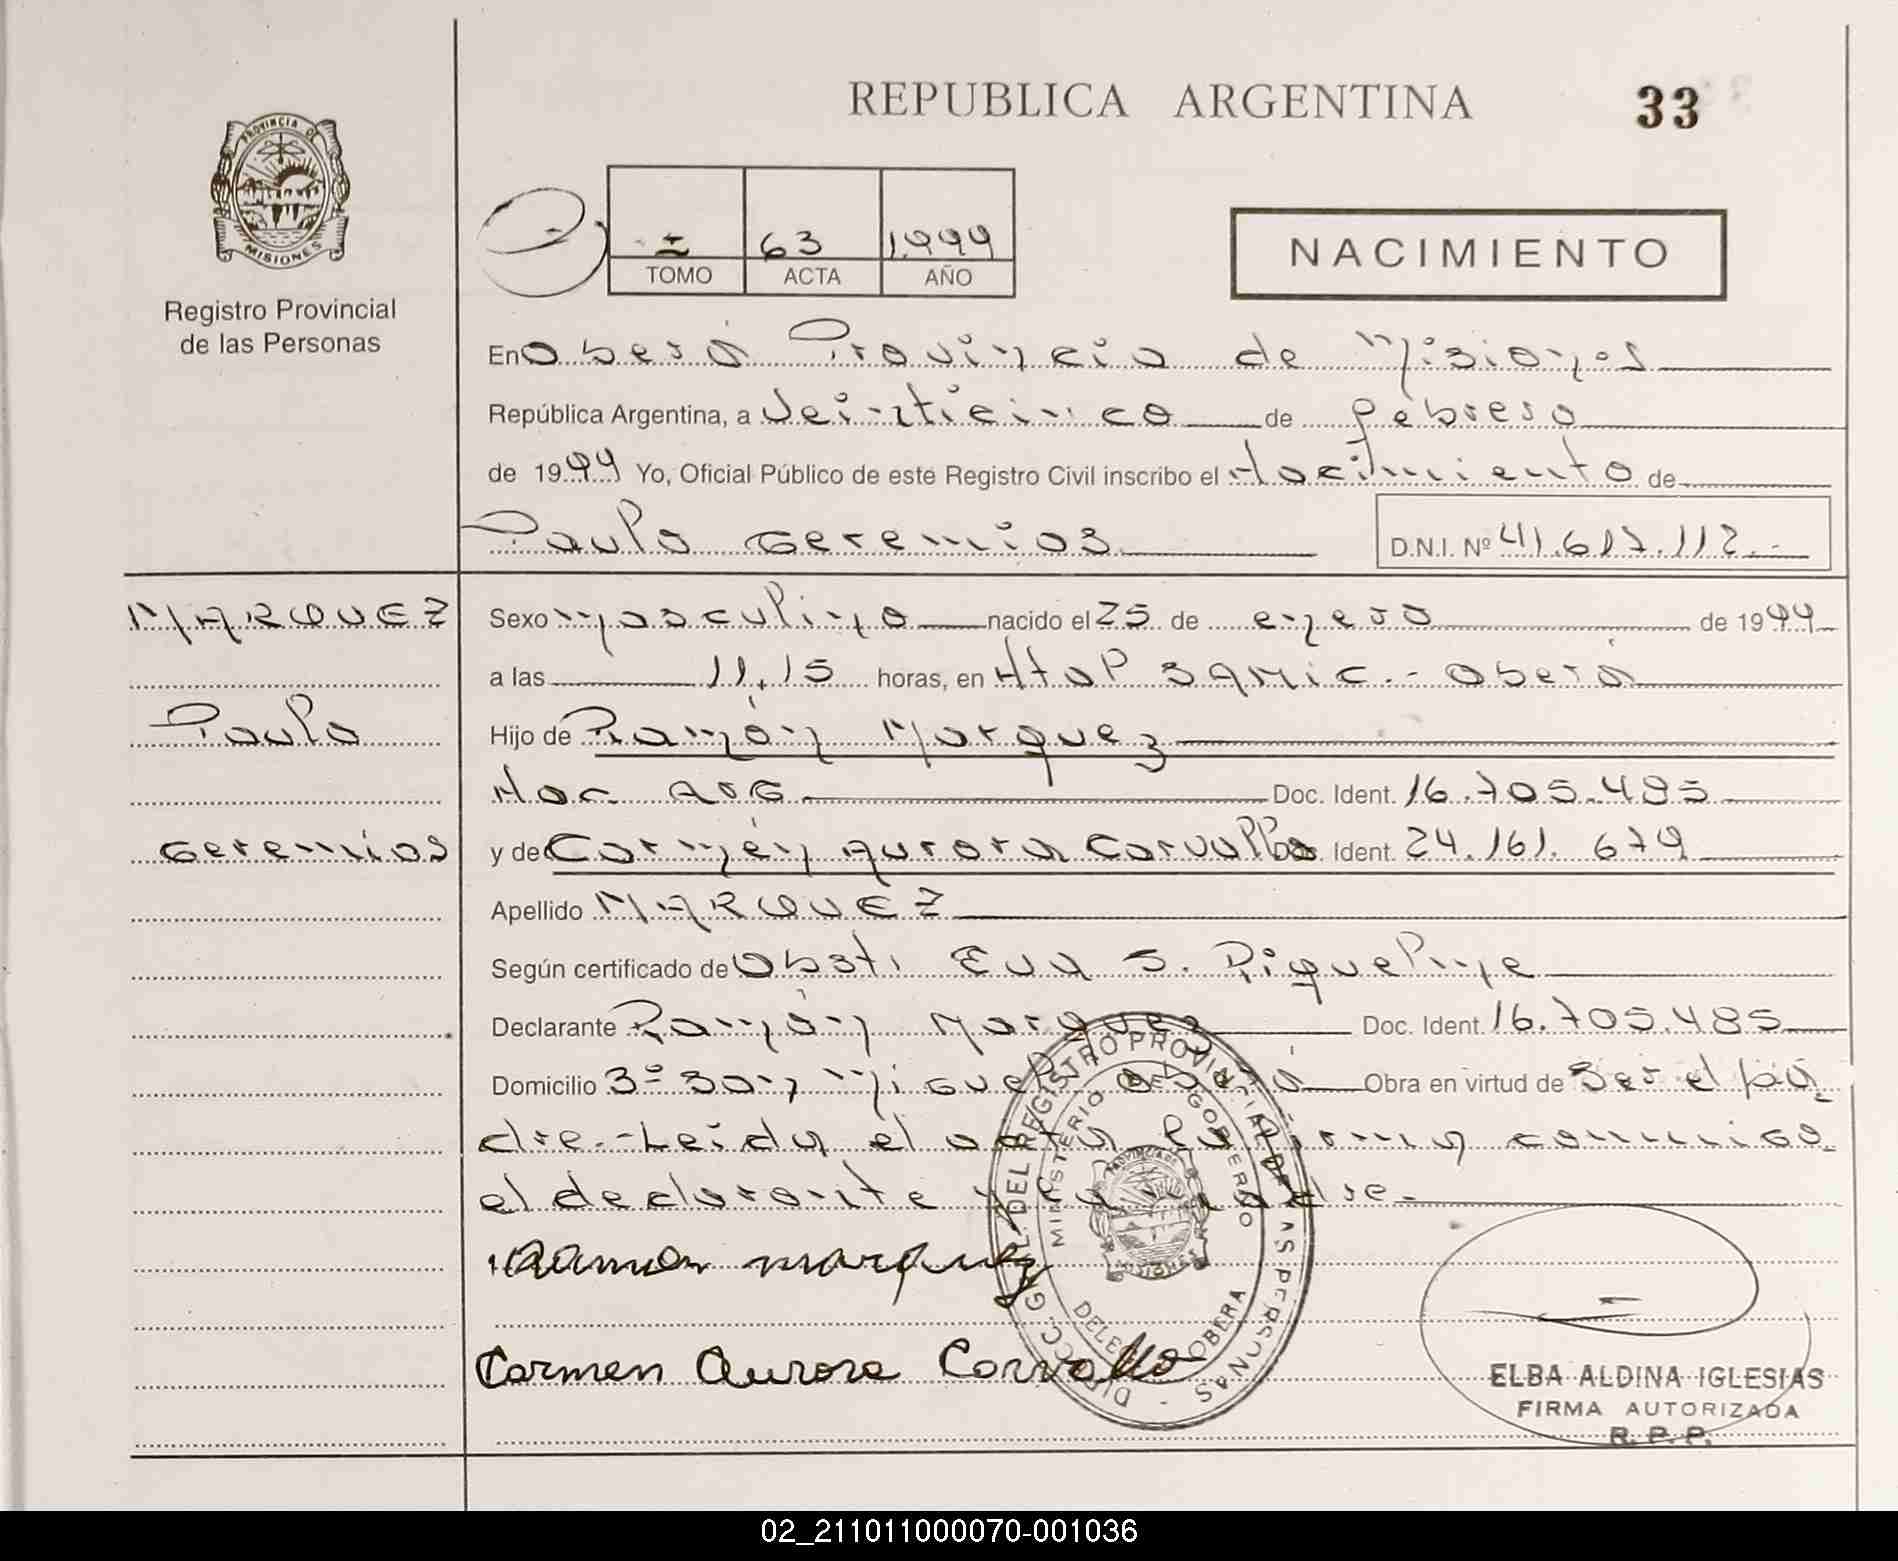 REPUBLICA ARGENTINA
33
PROVINCIA DE
MISIONES
Registro Provincial
de las Personas
63 1.999
TOMO ACTA AÑO
NACIMIENTO
En Oberá Provincia de Misiones
República Argentina, a Veinticinco de febrero
de 1999 Yo, Oficial Público de este Registro Civil inscribo el Nacimiento de
Paulo Geremias D.N.I. Nº 41.617.112.-
MARQUEZ
Paulo
Geremias
Sexo masculino nacido el 25 de enero de 1999
a las 11,15 horas, en Htal SAMIC.- Oberá
Hijo de Ramón Marquez
Nac ARG Doc. Ident. 16.705.485
y de Carmen Aurora Carvallo Ident. 24.161.679
Apellido MARQUEZ
Según certificado de Obst. Eva S. Riquelme
Declarante Ramón Marquez Doc. Ident. 16.705.485
Domicilio Bº San Miguel Oberá Obra en virtud de Ser el pa-
dre.- Leida el acta la firma conmigo
el declarante y la madre.-
Ramon marquez
Carmen Aurora Carvallo
DIRECC. GRAL. DEL REGISTRO PROVINCIAL DE LAS PERSONAS -
MINISTERIO DE GOBIERNO
PROVINCIA DE
MISIONES
OBERA
ELBA ALDINA IGLESIAS
FIRMA AUTORIZADA
R. P. P.
02_211011000070-001036